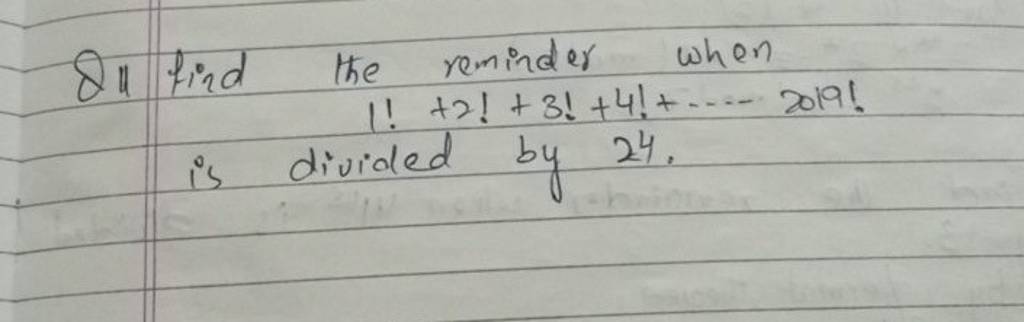 Q11 find the reminder when
1! +2! + 3! + 4! + ---- 2019!
is divided by 24.